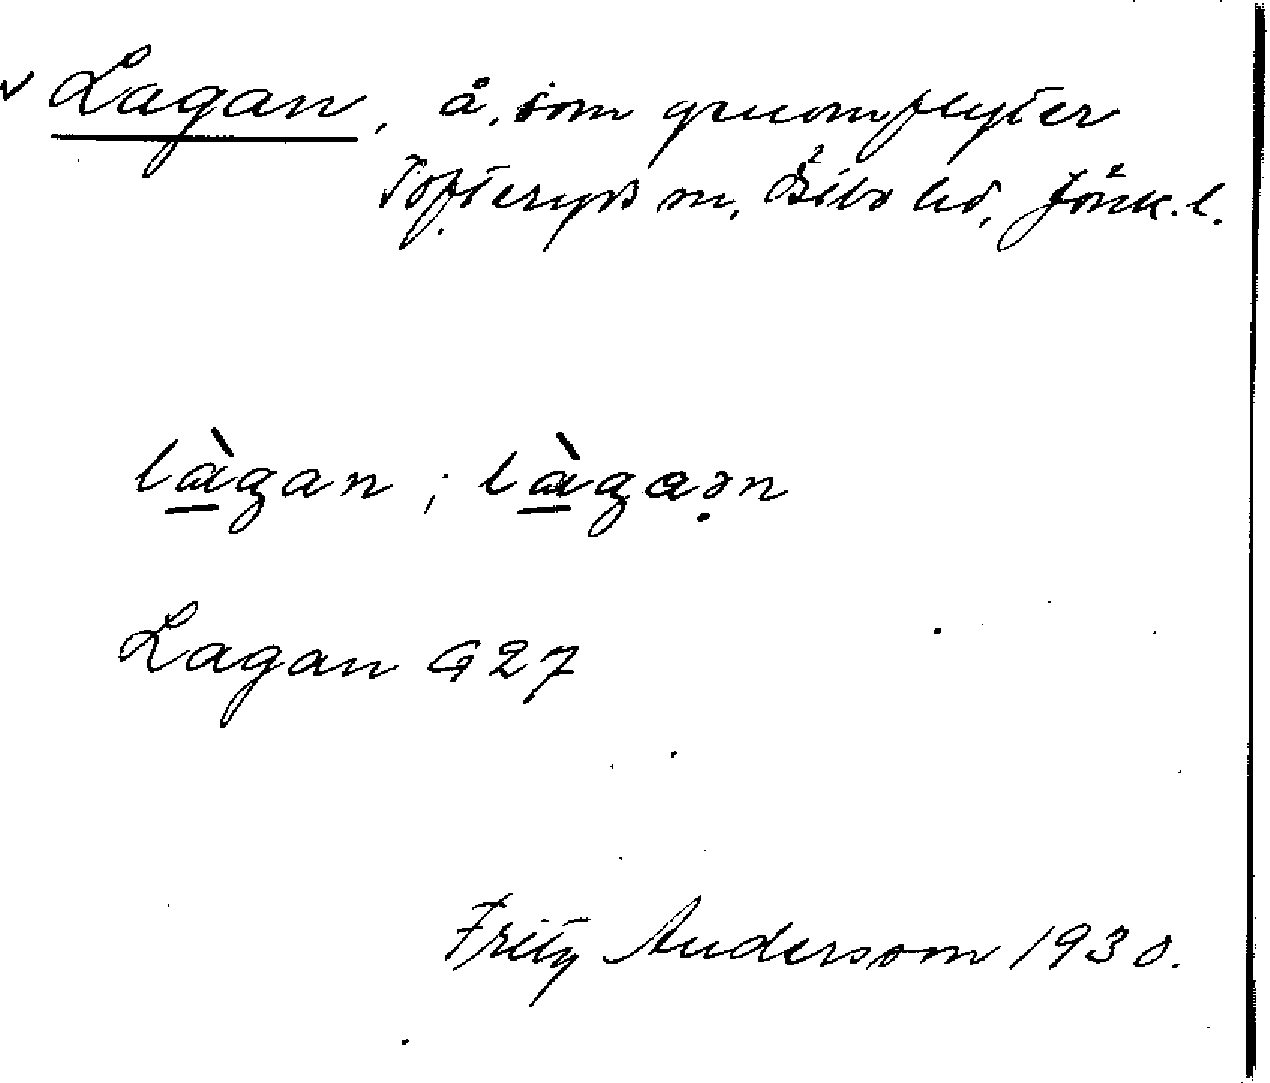 Lagan, å, som genomflyter
Tofteryds sn, Östbo hd, Jönk. l.
là̱gan ; là̱gaə̣n
Lagan G 27
Fritz Andersson 1930.